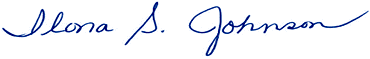 Ilona S. Johnson